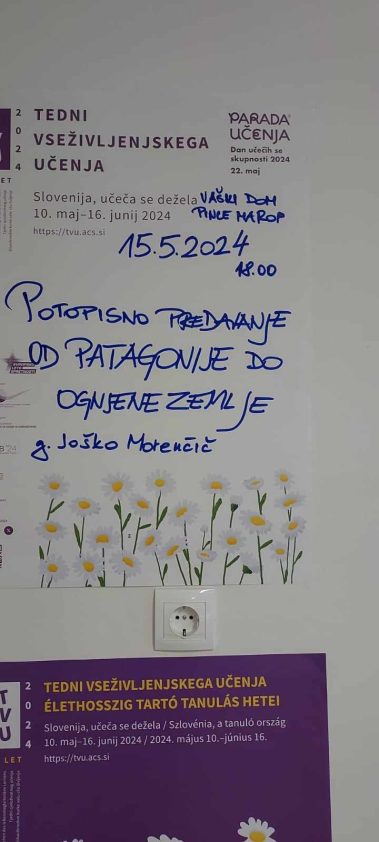 2024
TEDNI
VSEŽIVLJENJSKEGA
UČENJA
PARADA
UČENJA
Dan učečih se
skupnosti 2024
22. maj
LET
Slovenija, učeča se dežela
10. maj–16. junij 2024
https://tvu.acs.si
VAŠKI DOM
PINCE MAROF
15.5.2024
18.00
POTOPISNO PREDAVANJE
OD PATAGONIJE DO
OGNJENE ZEMLJE
g. Joško Morenčič
TVU
2024
LET
TEDNI VSEŽIVLJENJSKEGA UČENJA
ÉLETHOSSZIG TARTÓ TANULÁS HETEI
Slovenija, učeča se dežela / Szlovénia, a tanuló ország
10. maj–16. junij 2024 / 2024. május 10.–június 16.
https://tvu.acs.si